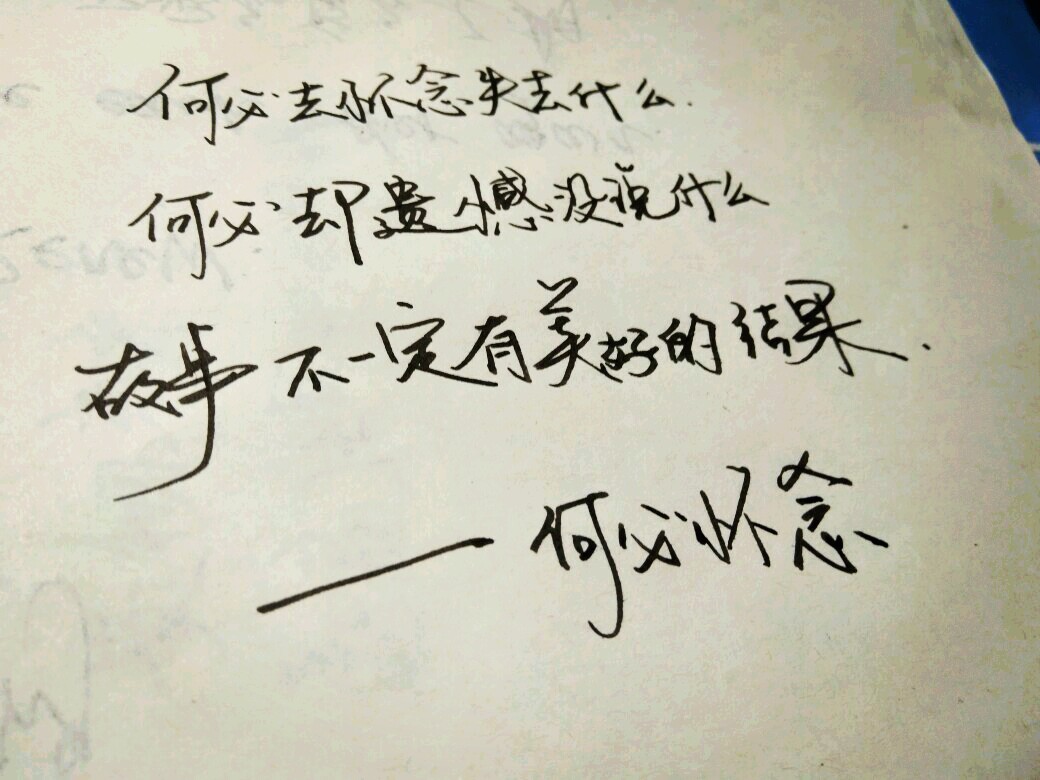 何必去怀念失去什么.
何必却遗憾没说什么
故事不一定有美好的结果.
——何必怀念